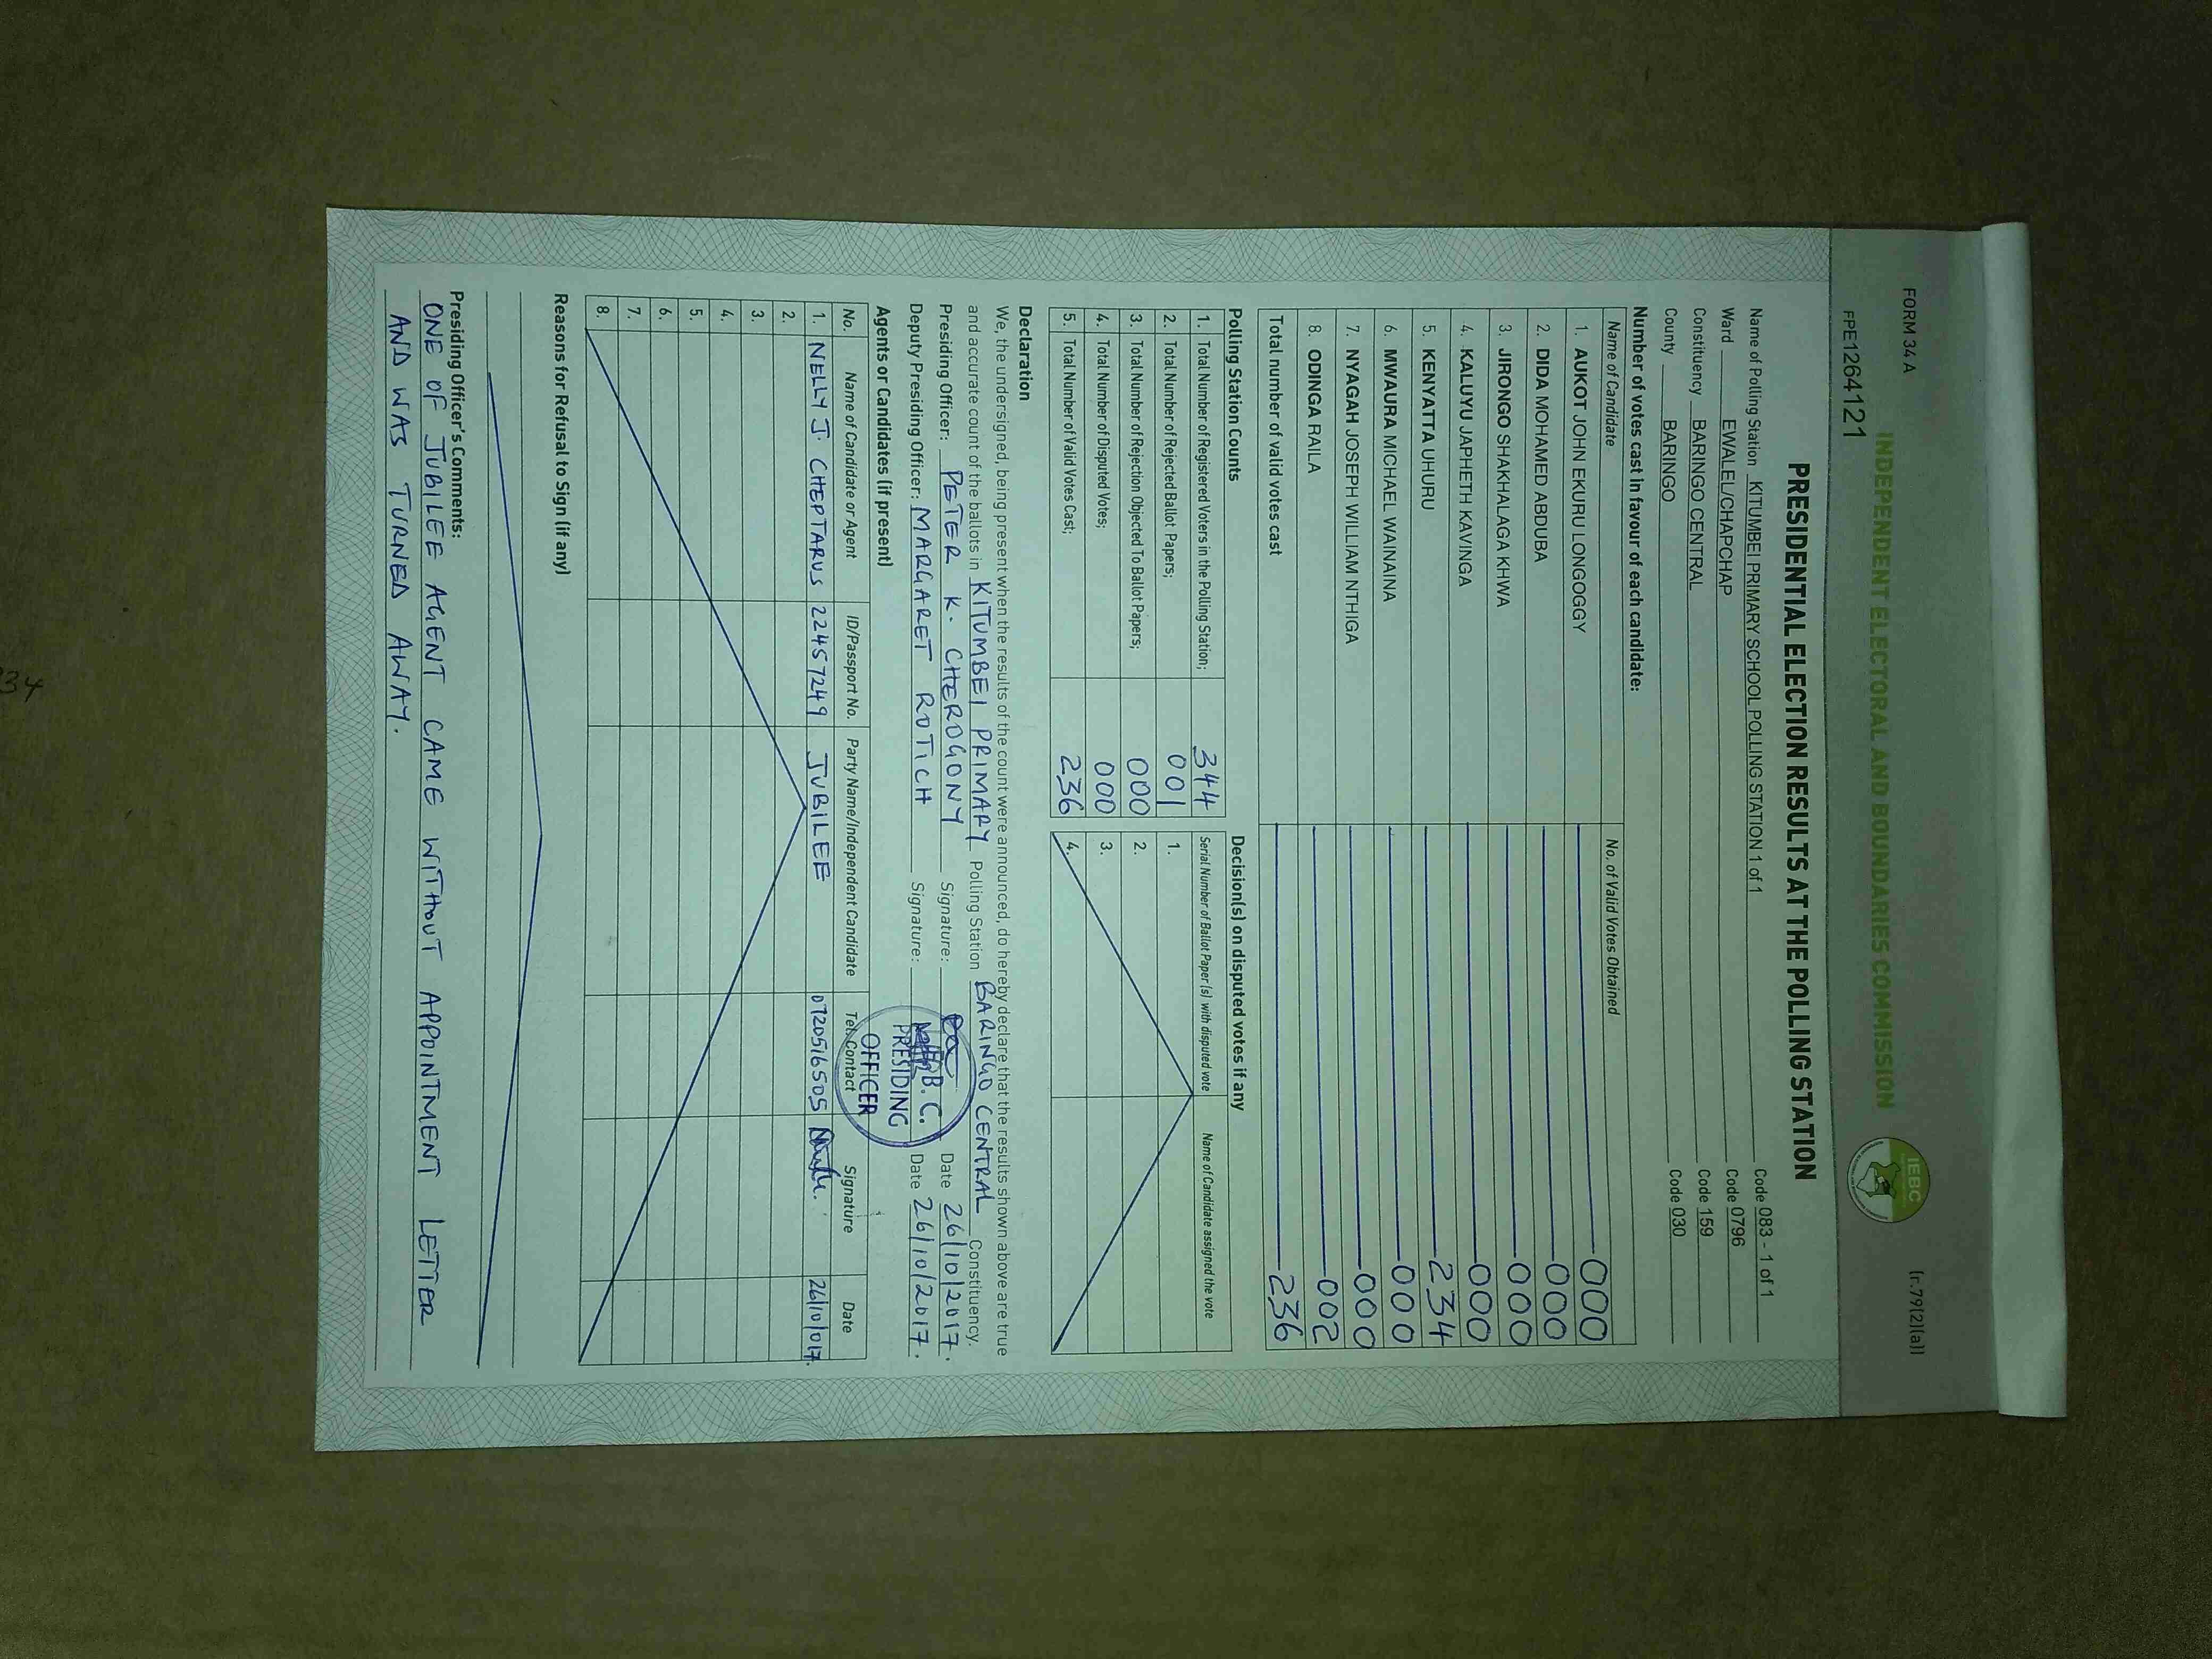 FORM 34 A
[r.79(2)(a)]
INDEPENDENT ELECTORAL AND BOUNDARIES COMMISSION
IEBC
FPE1264121
PRESIDENTIAL ELECTION RESULTS AT THE POLLING STATION
Name of Polling Station KITUMBEI PRIMARY SCHOOL POLLING STATION 1 of 1 Code 083 - 1 of 1
Ward EWALEL/CHAPCHAP Code 0796
Constituency BARINGO CENTRAL Code 159
County BARINGO Code 030
Number of votes cast in favour of each candidate:
Name of Candidate No. of Valid Votes Obtained
1. AUKOT JOHN EKURU LONGOGGY 000
2. DIDA MOHAMED ABDUBA 000
3. JIRONGO SHAKHALAGA KHWA 000
4. KALUYU JAPHETH KAVINGA 000
5. KENYATTA UHURU 234
6. MWAURA MICHAEL WAINAINA 000
7. NYAGAH JOSEPH WILLIAM NTHIGA 000
8. ODINGA RAILA 002
Total number of valid votes cast 236
Polling Station Counts
1. Total Number of Registered Voters in the Polling Station; 344
2. Total Number of Rejected Ballot Papers; 001
3. Total Number of Rejection Objected To Ballot Papers; 000
4. Total Number of Disputed Votes; 000
5. Total Number of Valid Votes Cast; 236
Decision(s) on disputed votes if any
Serial Number of Ballot Paper (s) with disputed vote Name of Candidate assigned the vote
1.
2.
3.
4.
Declaration
We, the undersigned, being present when the results of the count were announced, do hereby declare that the results shown above are true
and accurate count of the ballots in KITUMBEI PRIMARY Polling Station BARINGO CENTRAL Constituency.
Presiding Officer: PETER K. CHEROGONY Signature: Date 26/10/2017.
Deputy Presiding Officer: MARGARET ROTICH Signature: Date 26/10/2017.
B.C.
PRESIDING
OFFICER
Agents or Candidates (if present)
No. Name of Candidate or Agent ID/Passport No. Party Name/Independent Candidate Tel. Contact Signature Date
1. NELLY J. CHEPTARUS 22457249 JUBILEE 0720516505 26/10/017.
2.
3.
4.
5.
6.
7.
8.
Reasons for Refusal to Sign (if any)
Presiding Officer's Comments:
ONE OF JUBILEE AGENT CAME WITHOUT APPOINTMENT LETTER
AND WAS TURNED AWAY.
34